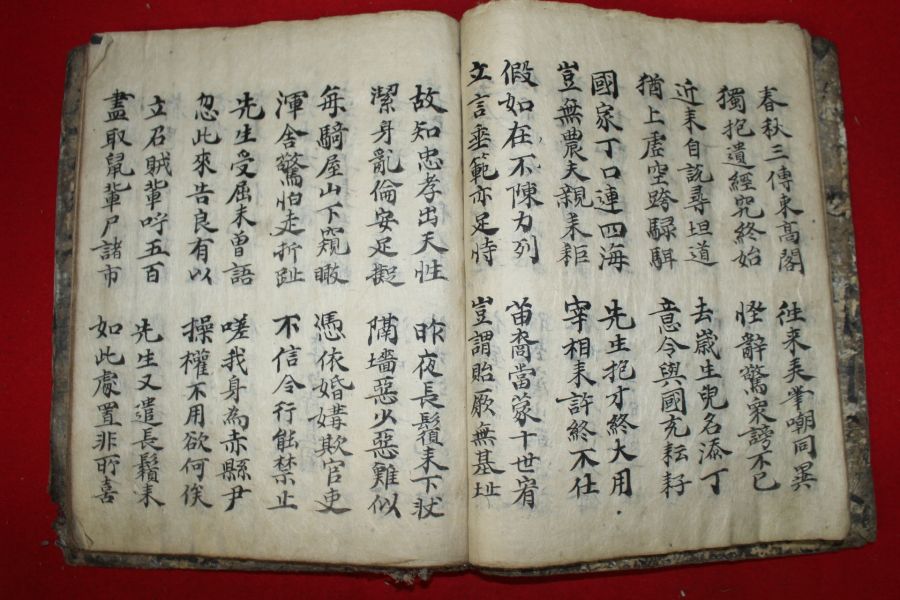 春秋三傳束高閣
獨抱遺經究終始
往来美峯嘲同異
怪辭驚衆謗不已
近耒自説尋坦道
猶上虛空跨騄駬
去歲生兒名添丁
意令與國充耘耔
國家丁口連四海
豈無農夫親耒耟
先生抱才終大用
宰相未許終不仕
假如在不陳力列
立言垂範亦足恃
苗裔當蒙十世宥
豈謂貽厥無基址
故知忠孝出天性
潔身亂倫安足擬
昨夜長鬚来下狀
隔墻惡少惡難似
每騎屋山下窺瞰
渾舍驚怕走折趾
憑依婚媾欺官吏
不信令行能禁止
先生受屈未曾語
忽此來告良有以
嗟我身為赤縣尹
操權不用欲何俟
立召賊輩呼五百
盡取鼠輩尸諸市
先生又遣長鬚来
如此處置非所喜